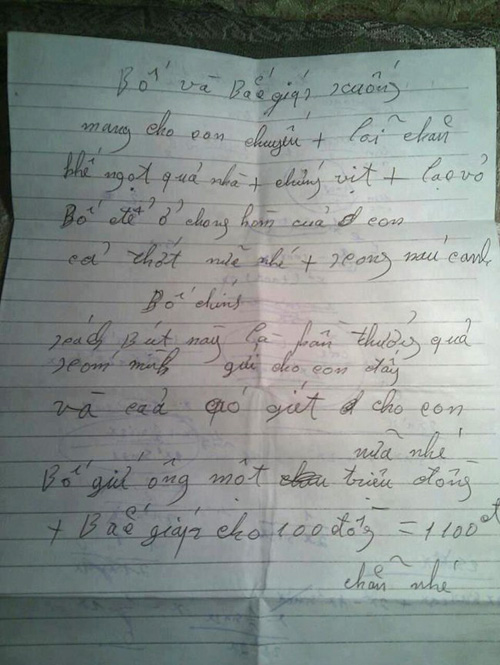 Bố và Bác giáp xuống
mang cho con chuyến + lai chăn
khế ngọt quả nhà + chứng vịt + lạo vỏ
Bố để ở chong hòm của con
cả thớt nữa nhé + xong nấu canh
Bố chính
sách Bút này là phần thưởng quả
xóm mình gửi cho con đấy
và cả giết cho con
nữa nhé
Bố gửi ông một triệu đồng
+ Bác giáp cho 100 đồng = 1100đ
chẵn nhé